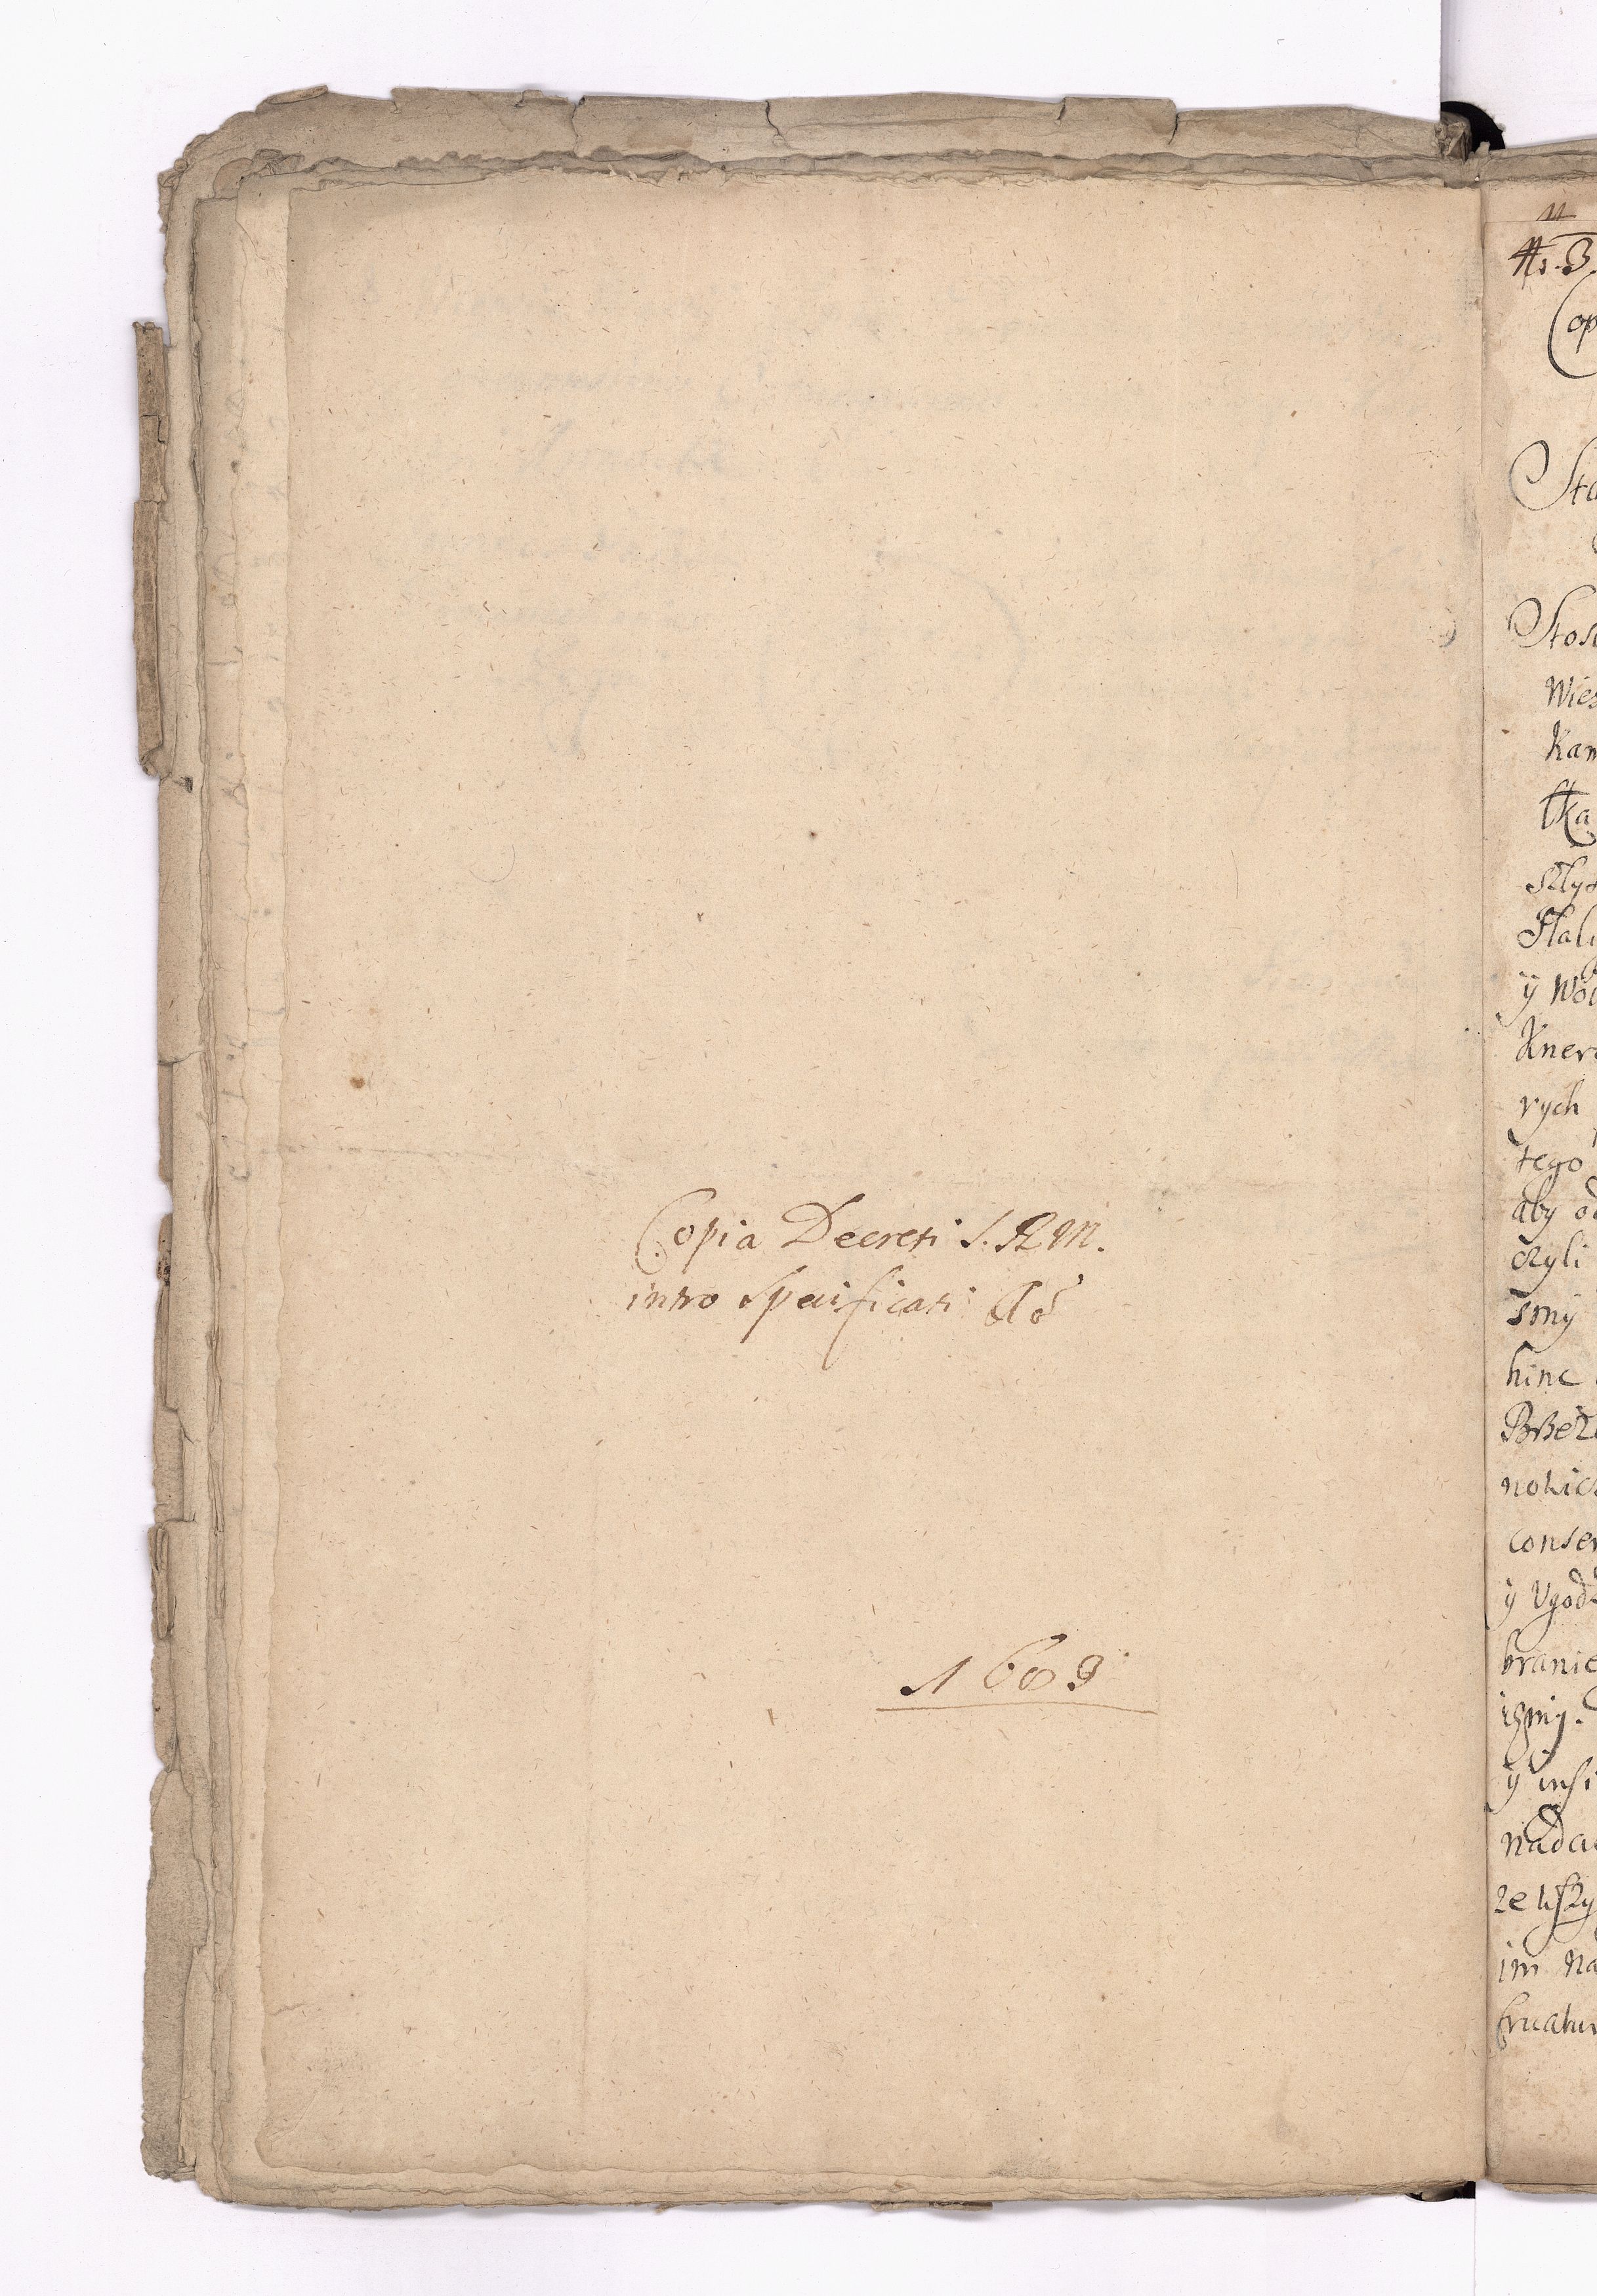 Copia Decreti S. R M.
intro Specificati Ao
1603
No. 3.
Cop
Sta
Stos
Wies
Kam
tka
szlys
Hali
ÿ Woi
Kner
rych
tego
aby od
czyli
smÿ
hinc
Brzez
nowicz
conser
ÿ Ugod
branie
izmÿ.
ÿ insi
nada
ze wszy
im na
fruatur